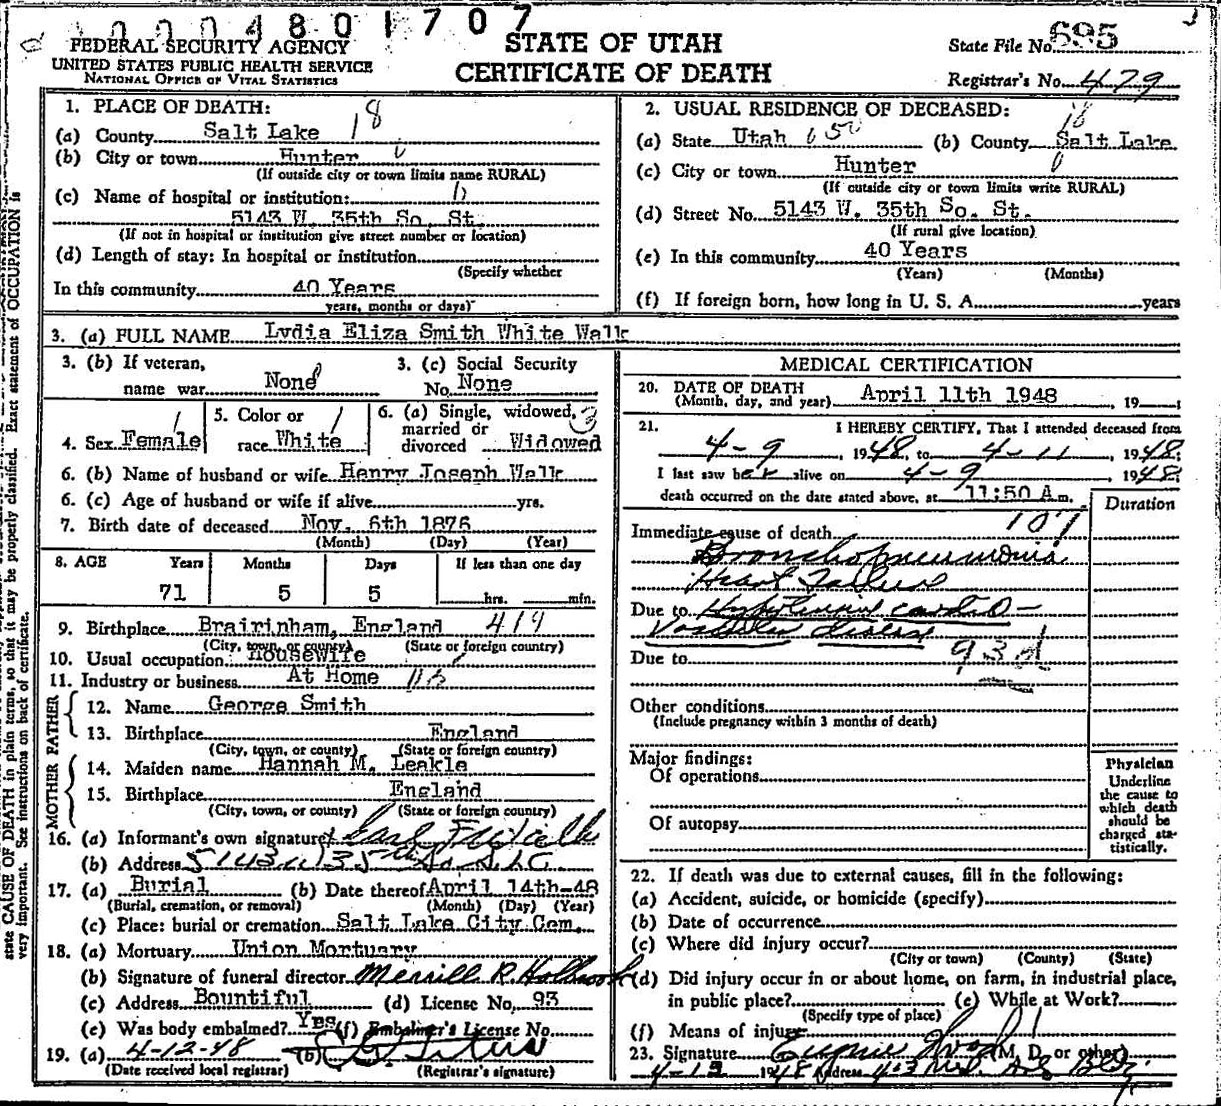 0004801707
FEDERAL SECURITY AGENCY
UNITED STATES PUBLIC HEALTH SERVICE
NATIONAL OFFICE OF VITAL STATISTICS
STATE OF UTAH
CERTIFICATE OF DEATH
State File No. 695
Registrar's No. 479
state CAUSE OF DEATH in plain terms, so that it may be properly classified. Exact statement of OCCUPATION is
very important. See instructions on back of certificate.
1. PLACE OF DEATH: 18
(a) County Salt Lake
(b) City or town Hunter
(If outside city or town limits name RURAL)
(c) Name of hospital or institution:
5143 W. 35th So. St.
(If not in hospital or institution give street number or location)
(d) Length of stay: In hospital or institution
(Specify whether
In this community 40 Years
years, months or days)
2. USUAL RESIDENCE OF DECEASED: 18
(a) State Utah 650 (b) County Salt Lake
(c) City or town Hunter
(If outside city or town limits write RURAL)
(d) Street No. 5143 W. 35th So. St.
(If rural give location)
(e) In this community 40 Years
(Years) (Months)
(f) If foreign born, how long in U. S. A. years
3. (a) FULL NAME Lydia Eliza Smith White Walk
3. (b) If veteran,
name war None
3. (c) Social Security
No. None
4. Sex Female
5. Color or
race White
6. (a) Single, widowed, 3
married or
divorced Widowed
6. (b) Name of husband or wife Henry Joseph Walk
6. (c) Age of husband or wife if alive yrs.
7. Birth date of deceased Nov. 6th 1876
(Month) (Day) (Year)
8. AGE Years Months Days If less than one day
71 5 5 hrs. min.
9. Birthplace Brairinham, England 414
(City, town, or county) (State or foreign country)
10. Usual occupation Housewife
11. Industry or business At Home
FATHER
12. Name George Smith
13. Birthplace England
(City, town, or county) (State or foreign country)
MOTHER
14. Maiden name Hannah M. Leakle
15. Birthplace England
(City, town, or county) (State or foreign country)
16. (a) Informant's own signature
(b) Address 5143 W 35th So. S.L.C.
17. (a) Burial (b) Date thereof April 14th-48
(Burial, cremation, or removal) (Month) (Day) (Year)
(c) Place: burial or cremation Salt Lake City Cem.
18. (a) Mortuary Union Mortuary
(b) Signature of funeral director Merrill R. Holbrook
(c) Address Bountiful (d) License No. 93
(e) Was body embalmed? Yes (f) Embalmer's License No.
19. (a) 4-12-48 (b)
(Date received local registrar) (Registrar's signature)
MEDICAL CERTIFICATION
20. DATE OF DEATH
(Month, day, and year) April 11th 1948, 19
21. I HEREBY CERTIFY, That I attended deceased from
4-9, 1948, to 4-11, 1948,
I last saw her alive on 4-9 1948;
death occurred on the date stated above, at 11:50 Am.
Duration
107
Immediate cause of death
Bronchopneumonia
Heart Failure
Due to Hypertensive cardio-
vascular disease
Due to 93d
Other conditions
(Include pregnancy within 3 months of death)
Major findings:
Of operations
Of autopsy
Physician
Underline
the cause to
which death
should be
charged sta-
tistically.
22. If death was due to external causes, fill in the following:
(a) Accident, suicide, or homicide (specify)
(b) Date of occurrence
(c) Where did injury occur?
(City or town) (County) (State)
(d) Did injury occur in or about home, on farm, in industrial place,
in public place? (e) While at Work?
(Specify type of place)
(f) Means of injury
23. Signature Eugene Wood (M. D. or other)
4-12 1948 Address 403 Med. Arts Bldg